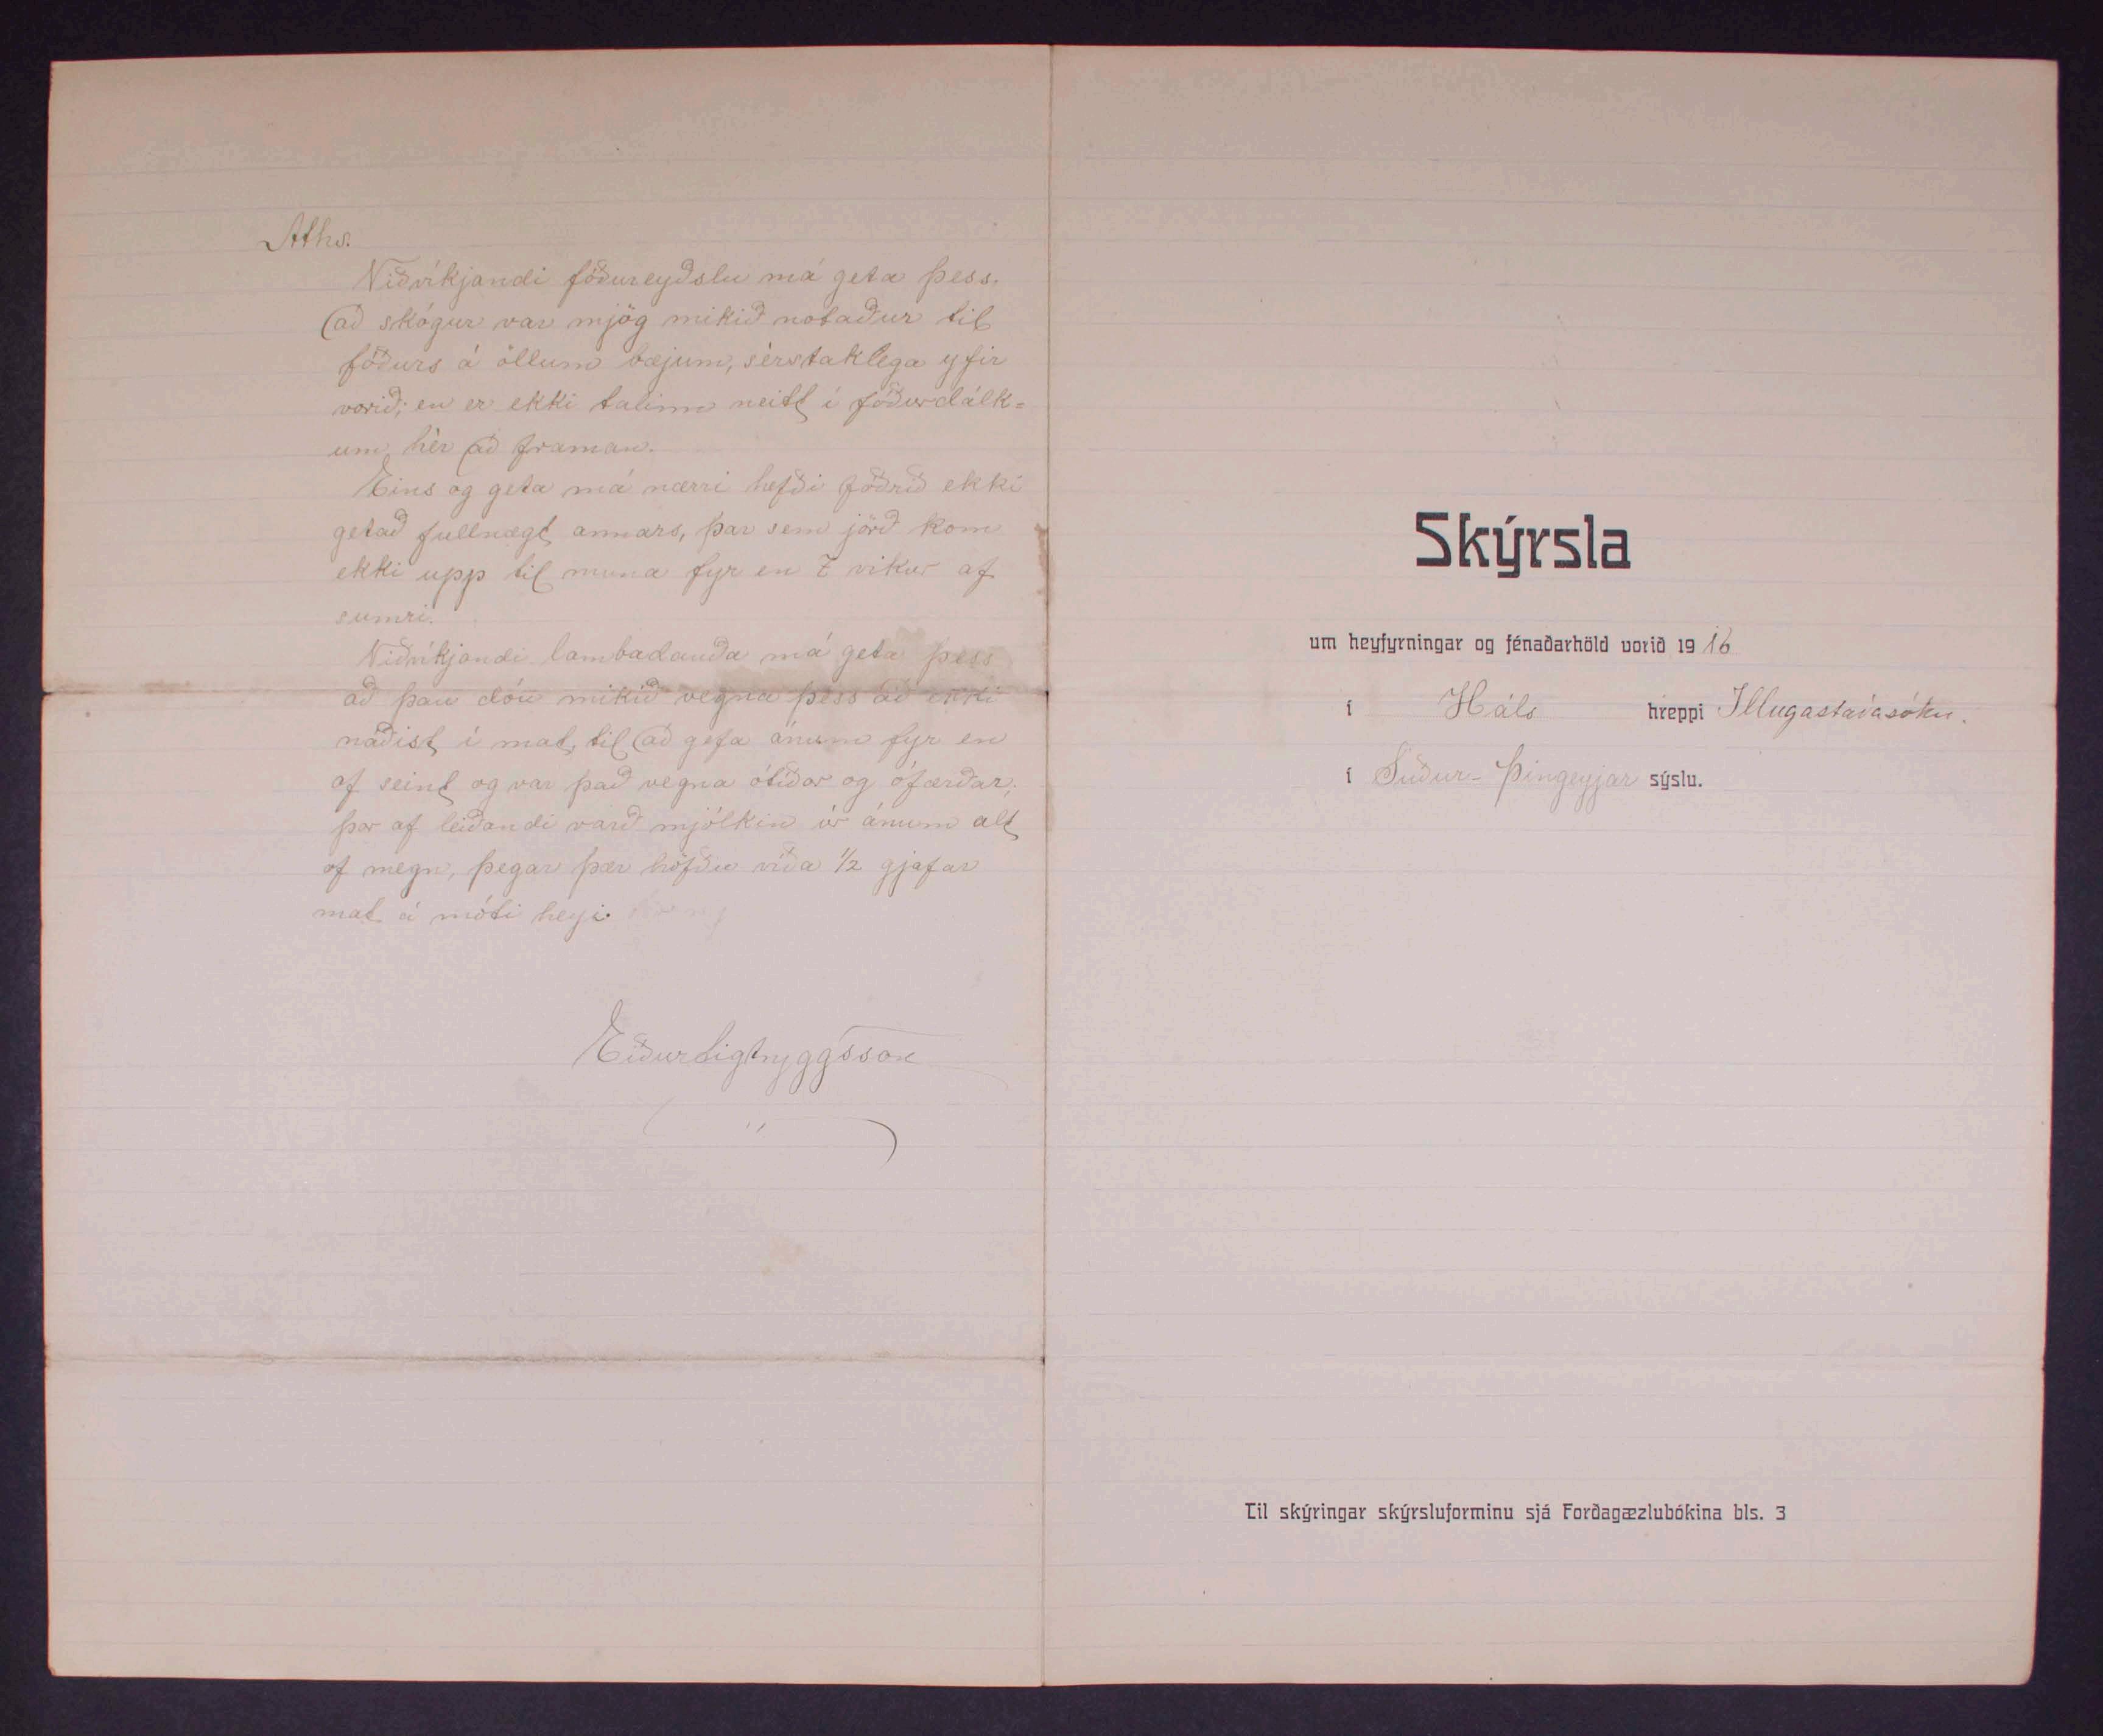 Aths.
Viðvíkjandi fóðureyðslu má geta þess.
að skógur var mjög mikið notaður til
fóðurs á öllum bæjum, sérstaklega yfir
vorið; en er ekki talinn neitt í fóðurdálk=
um hér að framan.
Eins og geta má nærri hefði fóðrið ekki
getað fullnægt annars, þar sem jörð kom
ekki upp til muna fyr en 7 vikur af
sumri.
Viðvíkjandi lambadauða má geta þess
að þau dóu mikið vegna þess að ekki
náðist í mat, til að gefa ánum fyr en
of seint og var það vegna ótíðar og ófærðar;
þar af leiðandi varð mjólkin úr ánum alt
of megn, þegar þær höfðu víða 1/2 gjafar
mat á móti heyi.
Eiður Sigtryggsson
Skýrsla
um heyfyrningar og fénaðarhöld vorið 1916
í Háls hreppi Illugastaðasókn.
í Suður-Þingeyjar sýslu.
Til skýringar skýrsluforminu sjá Forðagæzlubókina bls. 3